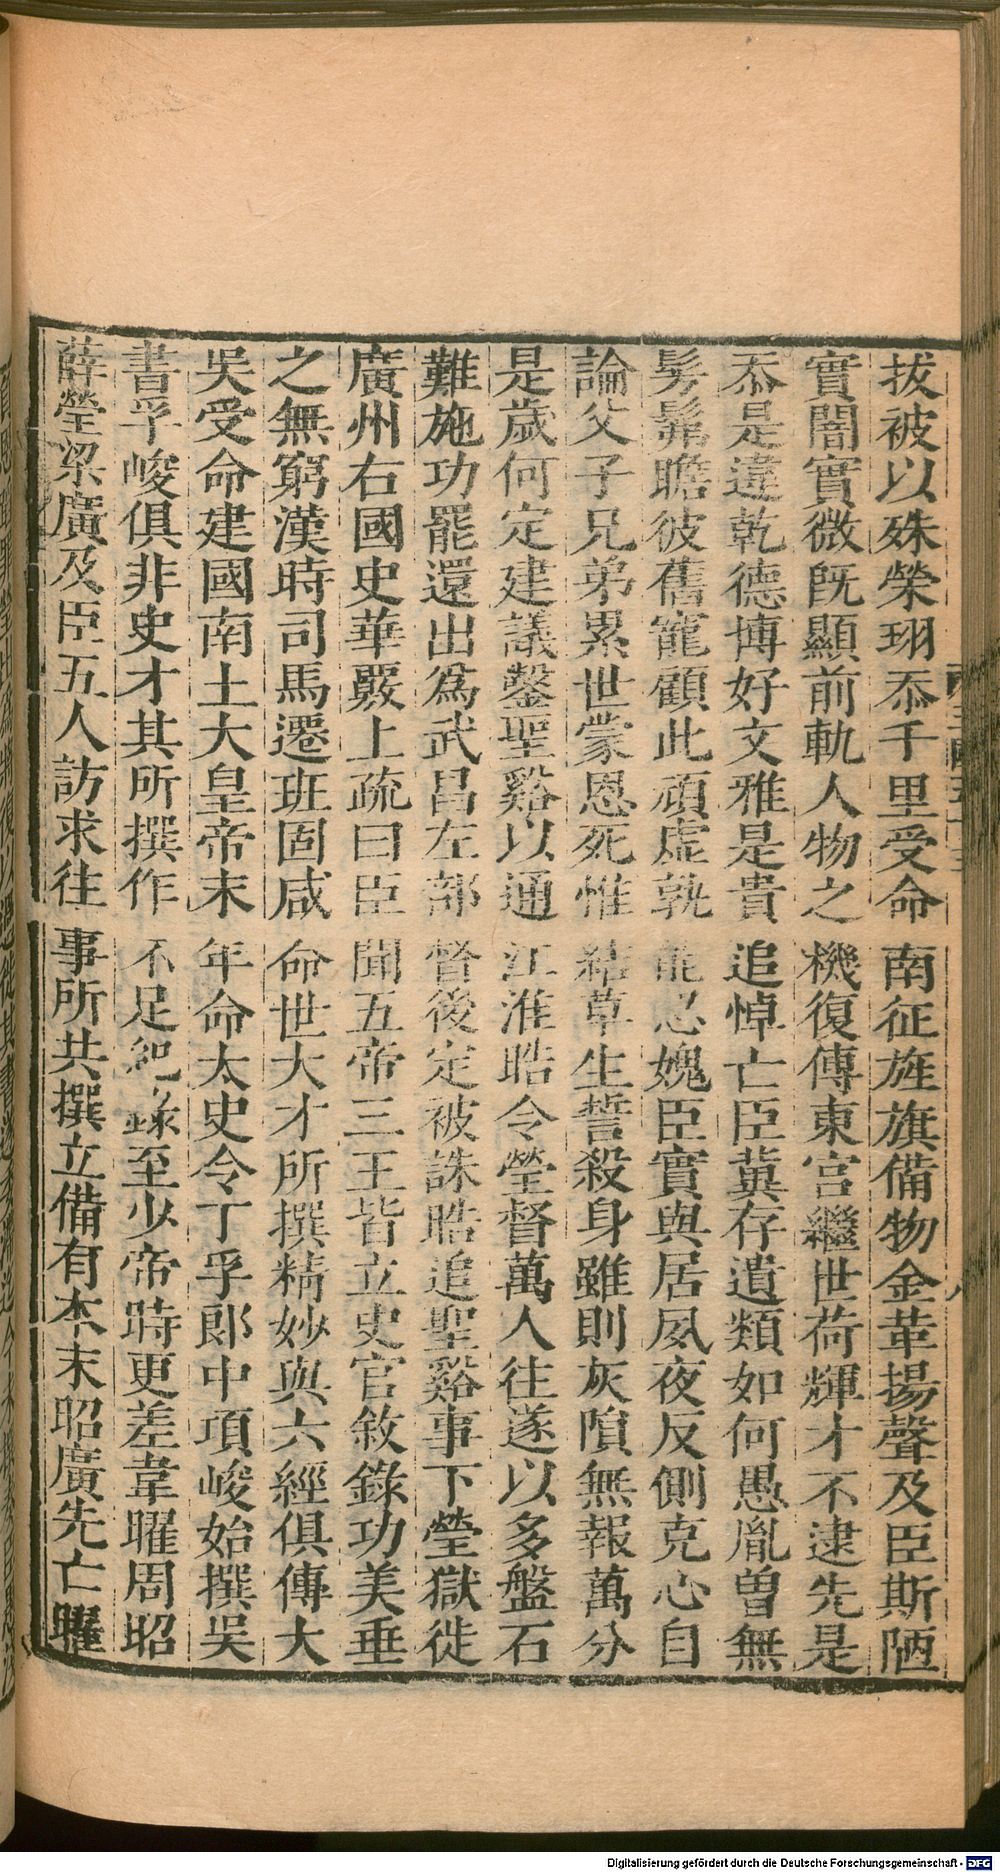 拔被以殊榮珝忝千里受命南征旌旗備物金革揚聲及臣斯陋
實闇實微旣顯前軌人物之機復傳東宮繼世荷輝才不逮先是
忝是違乾德博好文雅是貴追悼亡臣冀存遺類如何愚胤曽無
髣髴瞻彼舊寵顧此頑虚孰能忍媿臣實與居夙夜反側克心自
論父子兄弟累世蒙恩死惟結草生誓殺身雖則灰隕無報萬分
是歳何定建議鑿聖谿以通江淮晧令瑩督萬人往遂以多盤石
難施功罷還出爲武昌左部督後定被誅晧追聖谿事下瑩獄徙
廣州右國史華覈上疏曰臣聞五帝三王皆立史官敘錄功美垂
之無窮漢時司馬遷班固咸命世大才所撰精妙與六經俱傳大
吳受命建國南土大皇帝末年命太史令丁孚郎中項峻始撰吳
書孚峻俱非史才其所撰作不足紀錄至少帝時更差韋曜周昭
薛瑩梁廣及臣五人訪求往事所共撰立備有本末昭廣先亡曜
Digitalisierung gefördert durch die Deutsche Forschungsgemeinschaft - DFG